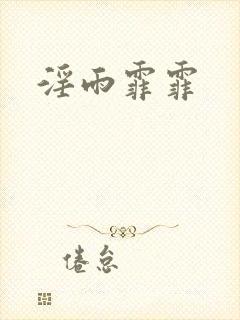 淫雨霏霏
倦怠